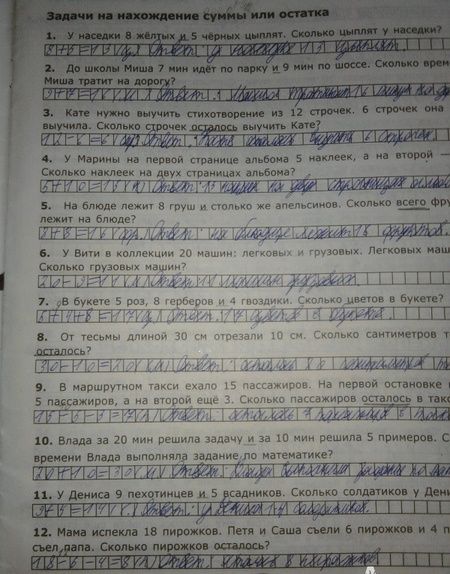 Задачи на нахождение суммы или остатка
1. У наседки 8 жёлтых и 5 чёрных цыплят. Сколько цыплят у наседки?
8+5=13 Ответ: у наседки 13 цыплят.
2. До школы Миша 7 мин идёт по парку и 9 мин по шоссе. Сколько врем
Миша тратит на дорогу?
Ответ:
3. Кате нужно выучить стихотворение из 12 строчек. 6 строчек она
выучила. Сколько строчек осталось выучить Кате?
Ответ: осталось выучить 6 строчек.
4. У Марины на первой странице альбома 5 наклеек, а на второй —
Сколько наклеек на двух страницах альбома?
Ответ: на двух
5. На блюде лежит 8 груш и столько же апельсинов. Сколько всего фру
лежит на блюде?
Ответ: на блюде лежит фруктов.
6. У Вити в коллекции 20 машин: легковых и грузовых. Легковых маш
Сколько грузовых машин?
Ответ:
7. В букете 5 роз, 8 герберов и 4 гвоздики. Сколько цветов в букете?
5+4+8=17 Ответ: 17 цветов в букете.
8. От тесьмы длиной 30 см отрезали 10 см. Сколько сантиметров т
осталось?
Ответ: осталось
9. В маршрутном такси ехало 15 пассажиров. На первой остановке
5 пассажиров, а на второй ещё 3. Сколько пассажиров осталось в так
15-5-3=7 Ответ: осталось 7
10. Влада за 20 мин решила задачу и за 10 мин решила 5 примеров. С
времени Влада выполняла задание по математике?
20+10=30 Ответ: Влада
11. У Дениса 9 пехотинцев и 5 всадников. Сколько солдатиков у Дени
Ответ: у Дениса 14 солдатиков.
12. Мама испекла 18 пирожков. Петя и Саша съели 6 пирожков и 4 п
съел папа. Сколько пирожков осталось?
18-6-4=8 Ответ: 8 пирожков